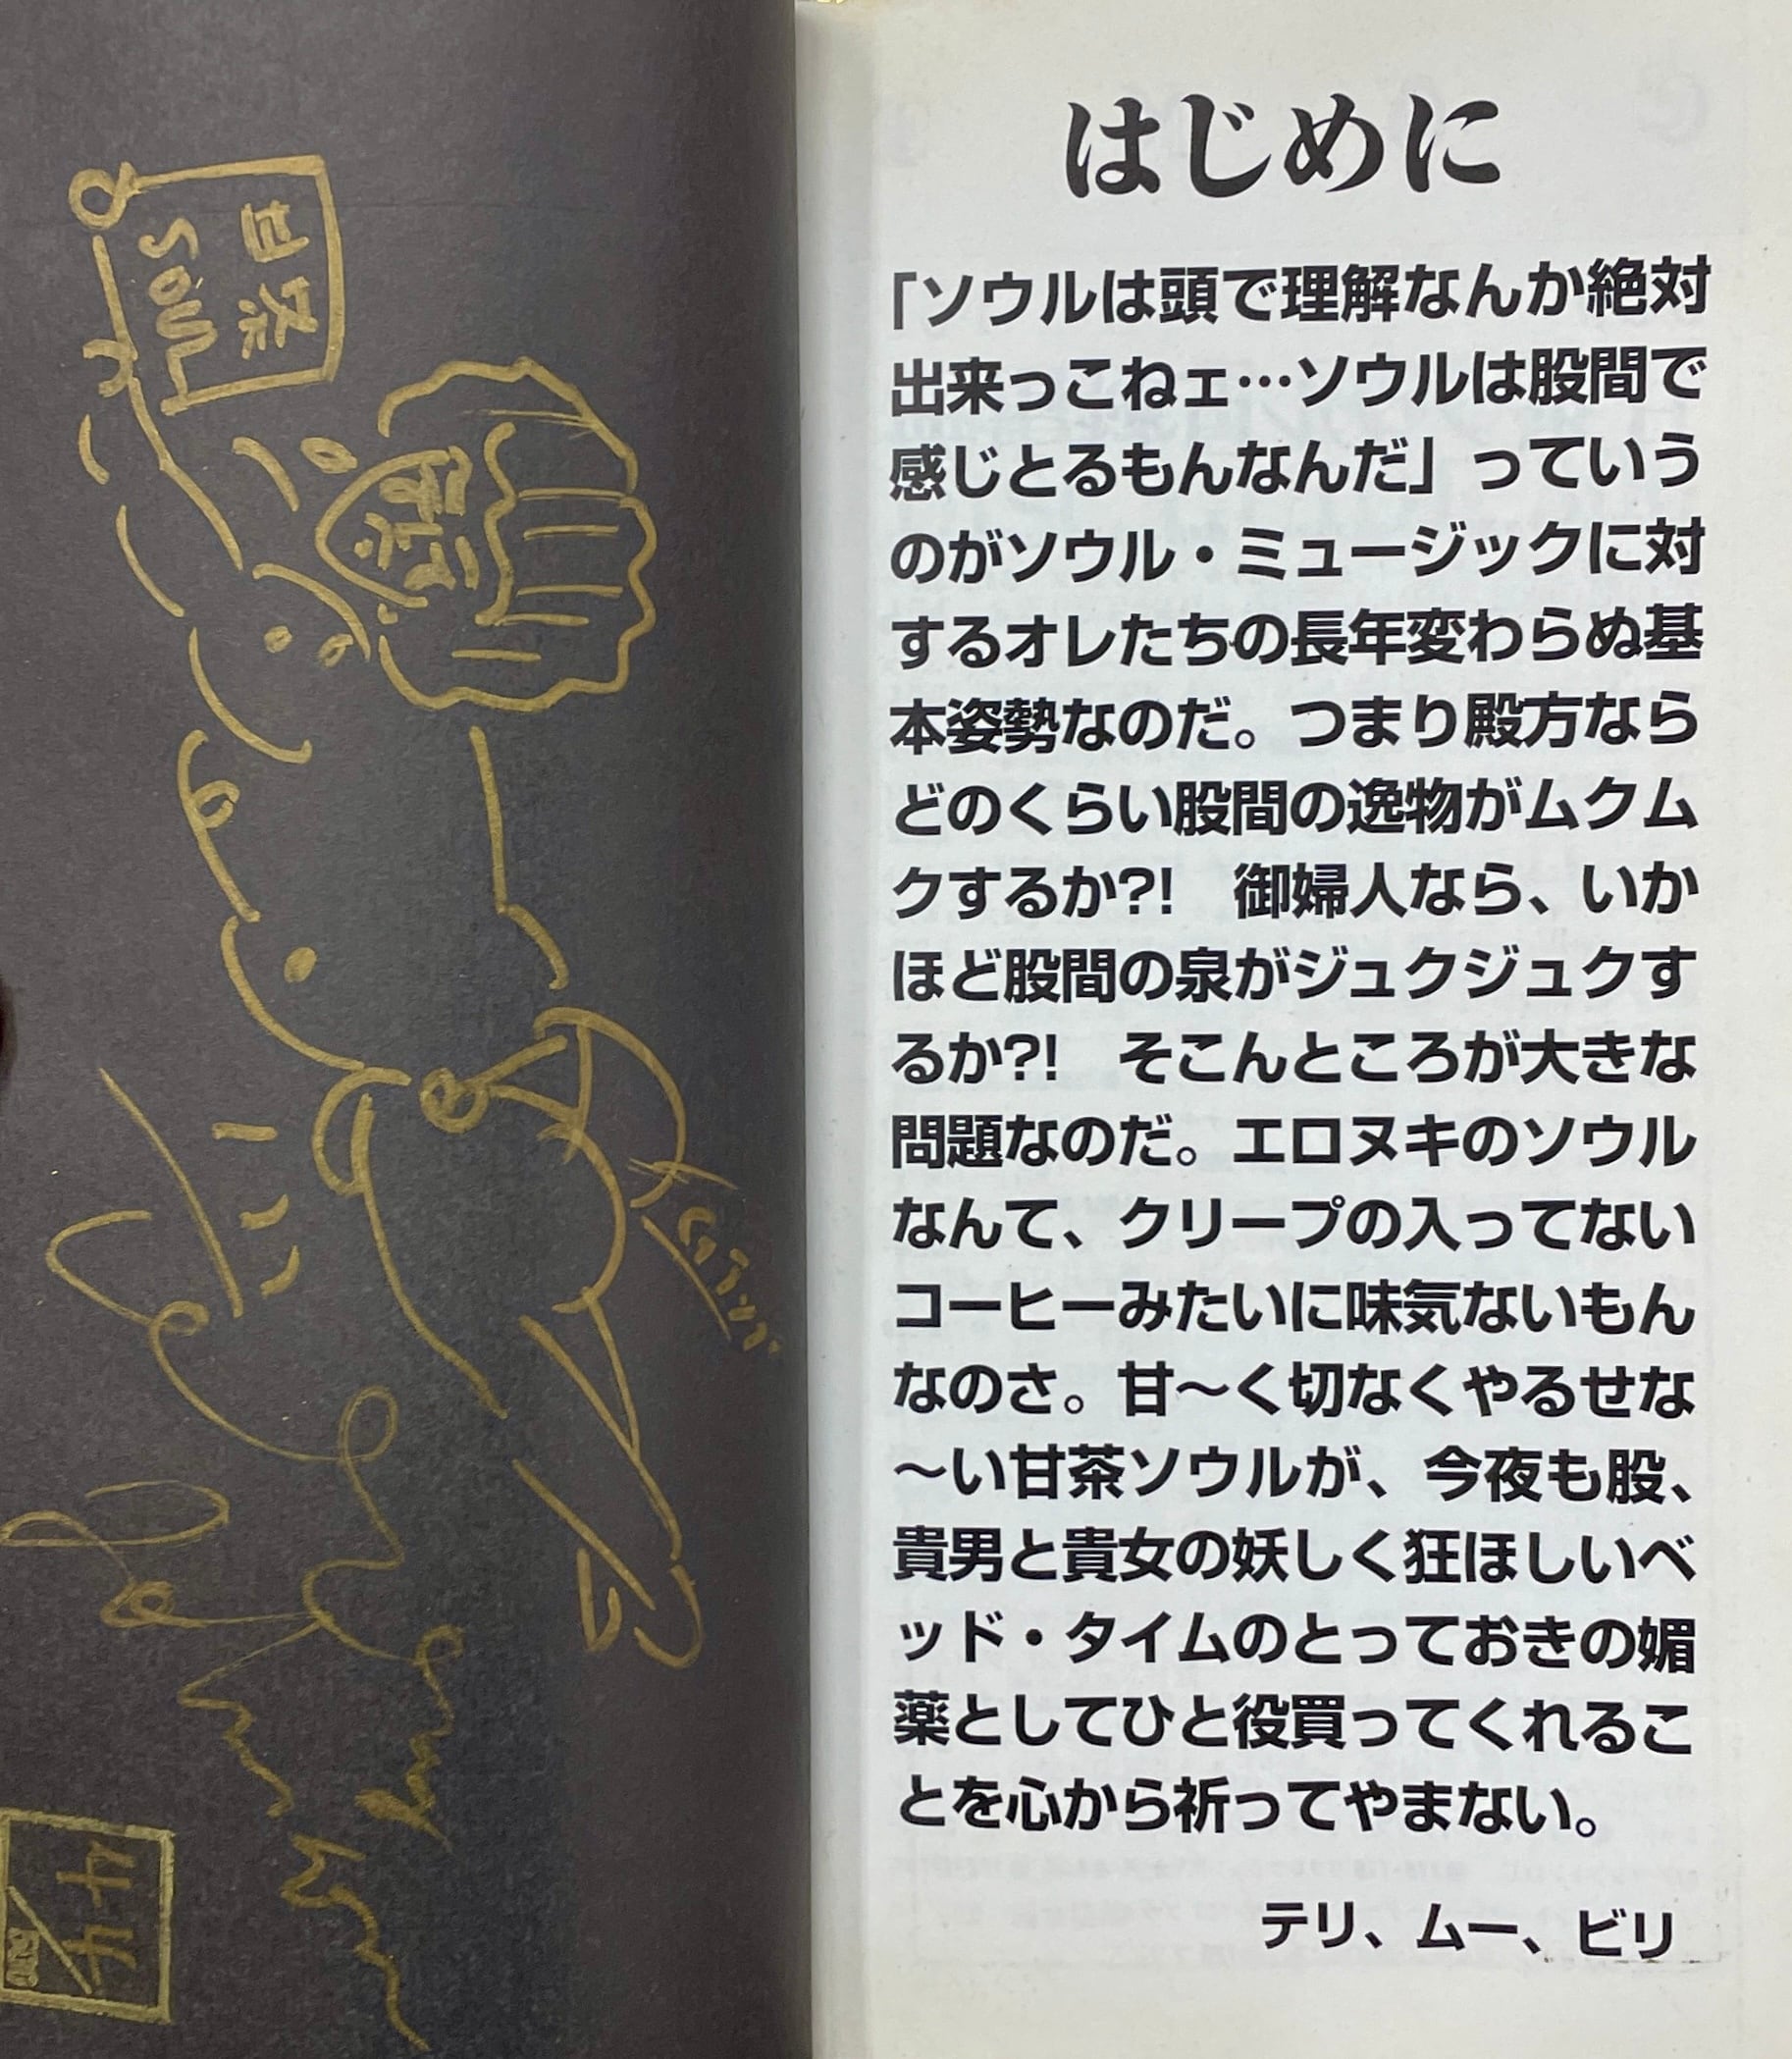 はじめに
「ソウルは頭で理解なんか絶対
出来っこねェ…ソウルは股間で
感じとるもんなんだ」っていう
のがソウル・ミュージックに対
するオレたちの長年変わらぬ基
本姿勢なのだ。つまり殿方なら
どのくらい股間の逸物がムクム
クするか?!　御婦人なら、いか
ほど股間の泉がジュクジュクす
るか?!　そこんところが大きな
問題なのだ。エロヌキのソウル
なんて、クリープの入ってない
コーヒーみたいに味気ないもん
なのさ。甘〜く切なくやるせな
〜い甘茶ソウルが、今夜も股、
貴男と貴女の妖しく狂ほしいベ
ッド・タイムのとっておきの媚
薬としてひと役買ってくれるこ
とを心から祈ってやまない。
テリ、ムー、ビリ
甘茶
SOUL